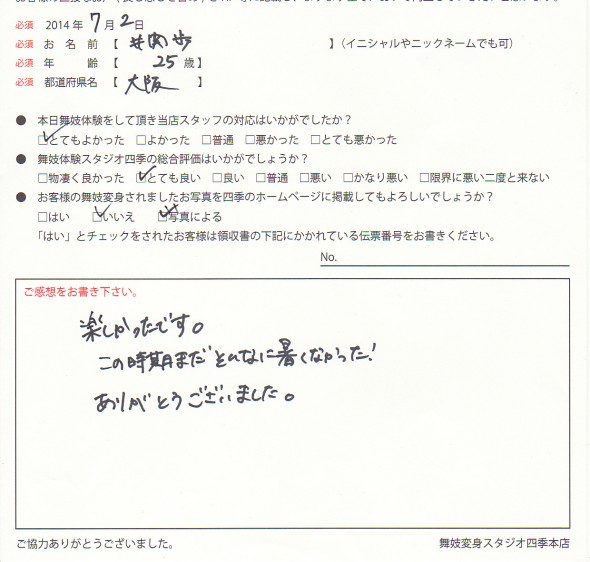 必須 2014年 7月 2日
必須 お名前【 井岡歩 】(イニシャルやニックネームでも可)
必須 年齢【 25歳】
必須 都道府県名【 大阪 】
● 本日舞妓体験をして頂き当店スタッフの対応はいかがでしたか？
☑とてもよかった □よかった □普通 □悪かった □とても悪かった
● 舞妓体験スタジオ四季の総合評価はいかがでしょうか？
□物凄く良かった ☑とても良い □良い □普通 □悪い □かなり悪い □限界に悪い二度と来ない
● お客様の舞妓変身されましたお写真を四季のホームページに掲載してもよろしいでしょうか？
□はい ☑いいえ ☑写真による
「はい」とチェックをされたお客様は領収書の下記にかかれている伝票番号をお書きください。
No.
ご感想をお書き下さい。
楽しかったです。
この時期まだそんなに暑くなかった！
ありがとうございました。
ご協力ありがとうございました。 舞妓変身スタジオ四季本店